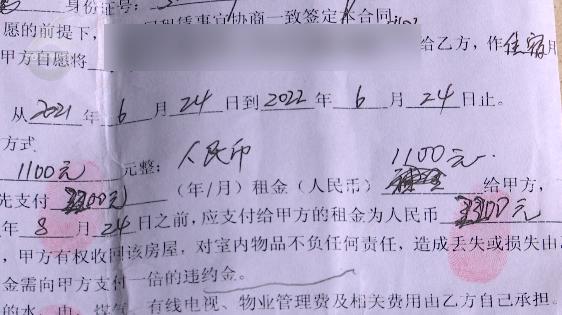 身份证号:
愿的前提下,
租赁事宜协商一致签定本合同
甲方自愿将 给乙方,作住宿用
从2021年6月24日到2022年6月24日止。
方式
1100元 元整: 人民币 1100元
先支付 3300元 (年/月)租金(人民币) 给甲方,
年8月24日之前,应支付给甲方的租金为人民币 3300元
,甲方有权收回该房屋,对室内物品不负任何责任,造成丢失或损失由
金需向甲方支付一倍的违约金。
的水、电、煤气、有线电视、物业管理费及相关费用由乙方自己承担。